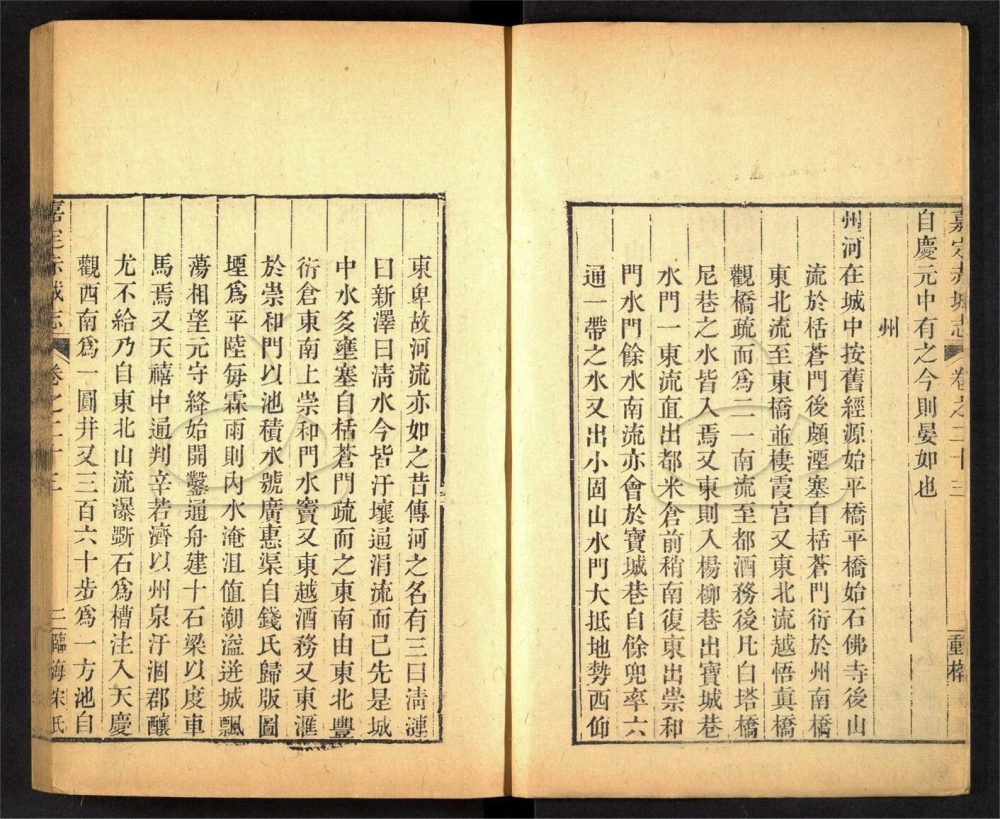 嘉定赤城志 卷之二十三 重梓
自慶元中有之今則晏如也
州
州河在城中按舊經源始平橋平橋始石佛寺後山
流於栝蒼門後頗湮塞自栝蒼門衍於州南橋
東北流至東橋並棲霞宮又東北流越悟真橋
觀橋疏而爲二一南流至都酒務後凡白塔橋
尼巷之水皆入焉又東則入楊柳巷出寶城巷
水門一東流直出都米倉前稍南復東出崇和
門水門餘水南流亦會於寶城巷自餘兜率六
通一帶之水又出小固山水門大抵地勢西仰
東卑故河流亦如之昔傳河之名有三曰清漣
曰新澤曰清水今皆汙壤通涓流而已先是城
中水多壅塞自栝蒼門疏而之東南由東北豐
衍倉東南上崇和門水竇又東越酒務又東滙
於崇和門以池積水號廣惠渠自錢氏歸版圖
堙爲平陸每霖雨則內水淹沮值潮溢迸城飄
蕩相望元守絳始開鑿通舟建十石梁以度車
馬焉又天禧中通判辛若濟以州泉汙涸郡釀
尤不給乃自東北山流瀑斲石爲槽注入天慶
觀西南爲一圓井又三百六十步爲一方池自
嘉定赤城志 卷之二十三 二 臨海宋氏